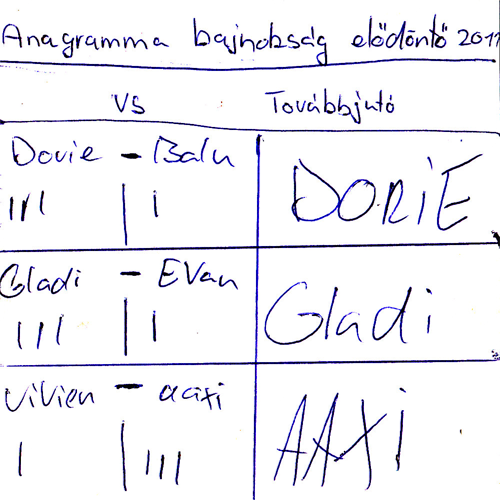 Anagramma bajnokság elődöntő 2011
VS Továbbjutó
Dorie - Balu DORIE
III | I
Gladi - EVan Gladi
III | I
Vivien - aaxi AAXI
I | III